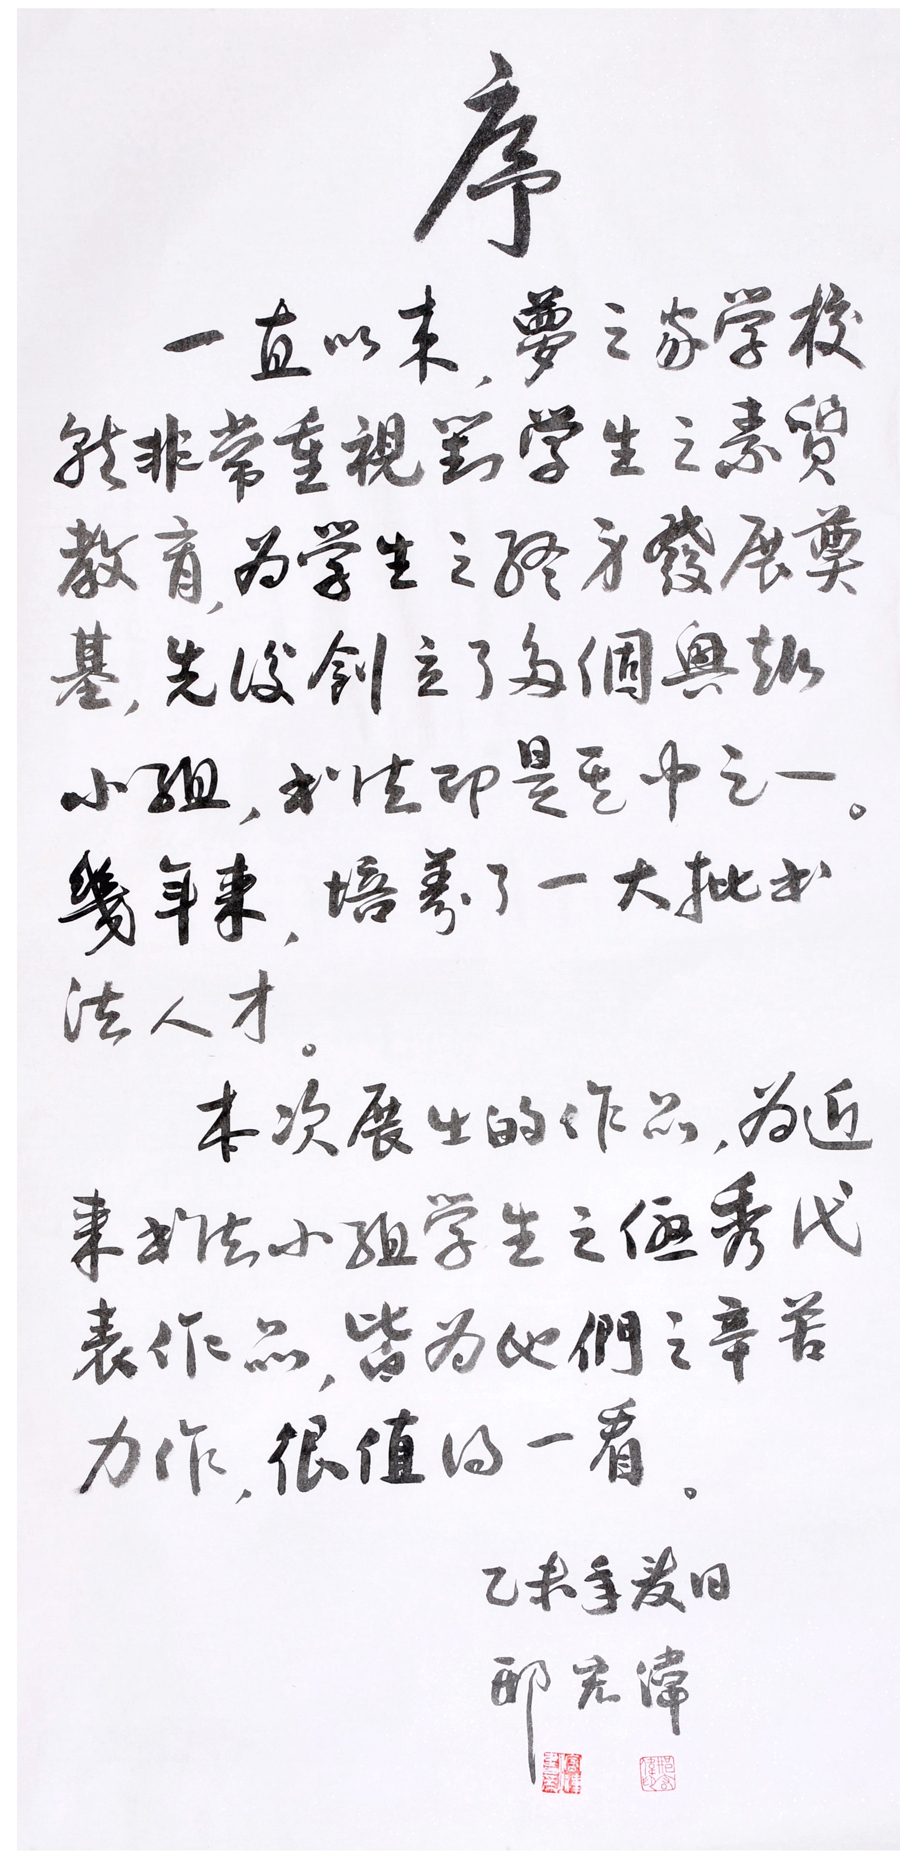 序
一直以来,夢之家学校
就非常重視對学生之素質
教育,为学生之終身發展奠
基,先後創立了多個興趣
小組,书法即是其中之一。
幾年来,培養了一大批书
法人才。
本次展出的作品,为近
来书法小組学生之優秀代
表作品,皆为他們之辛苦
力作,很值得一看。
乙未年夏日
邢宏偉